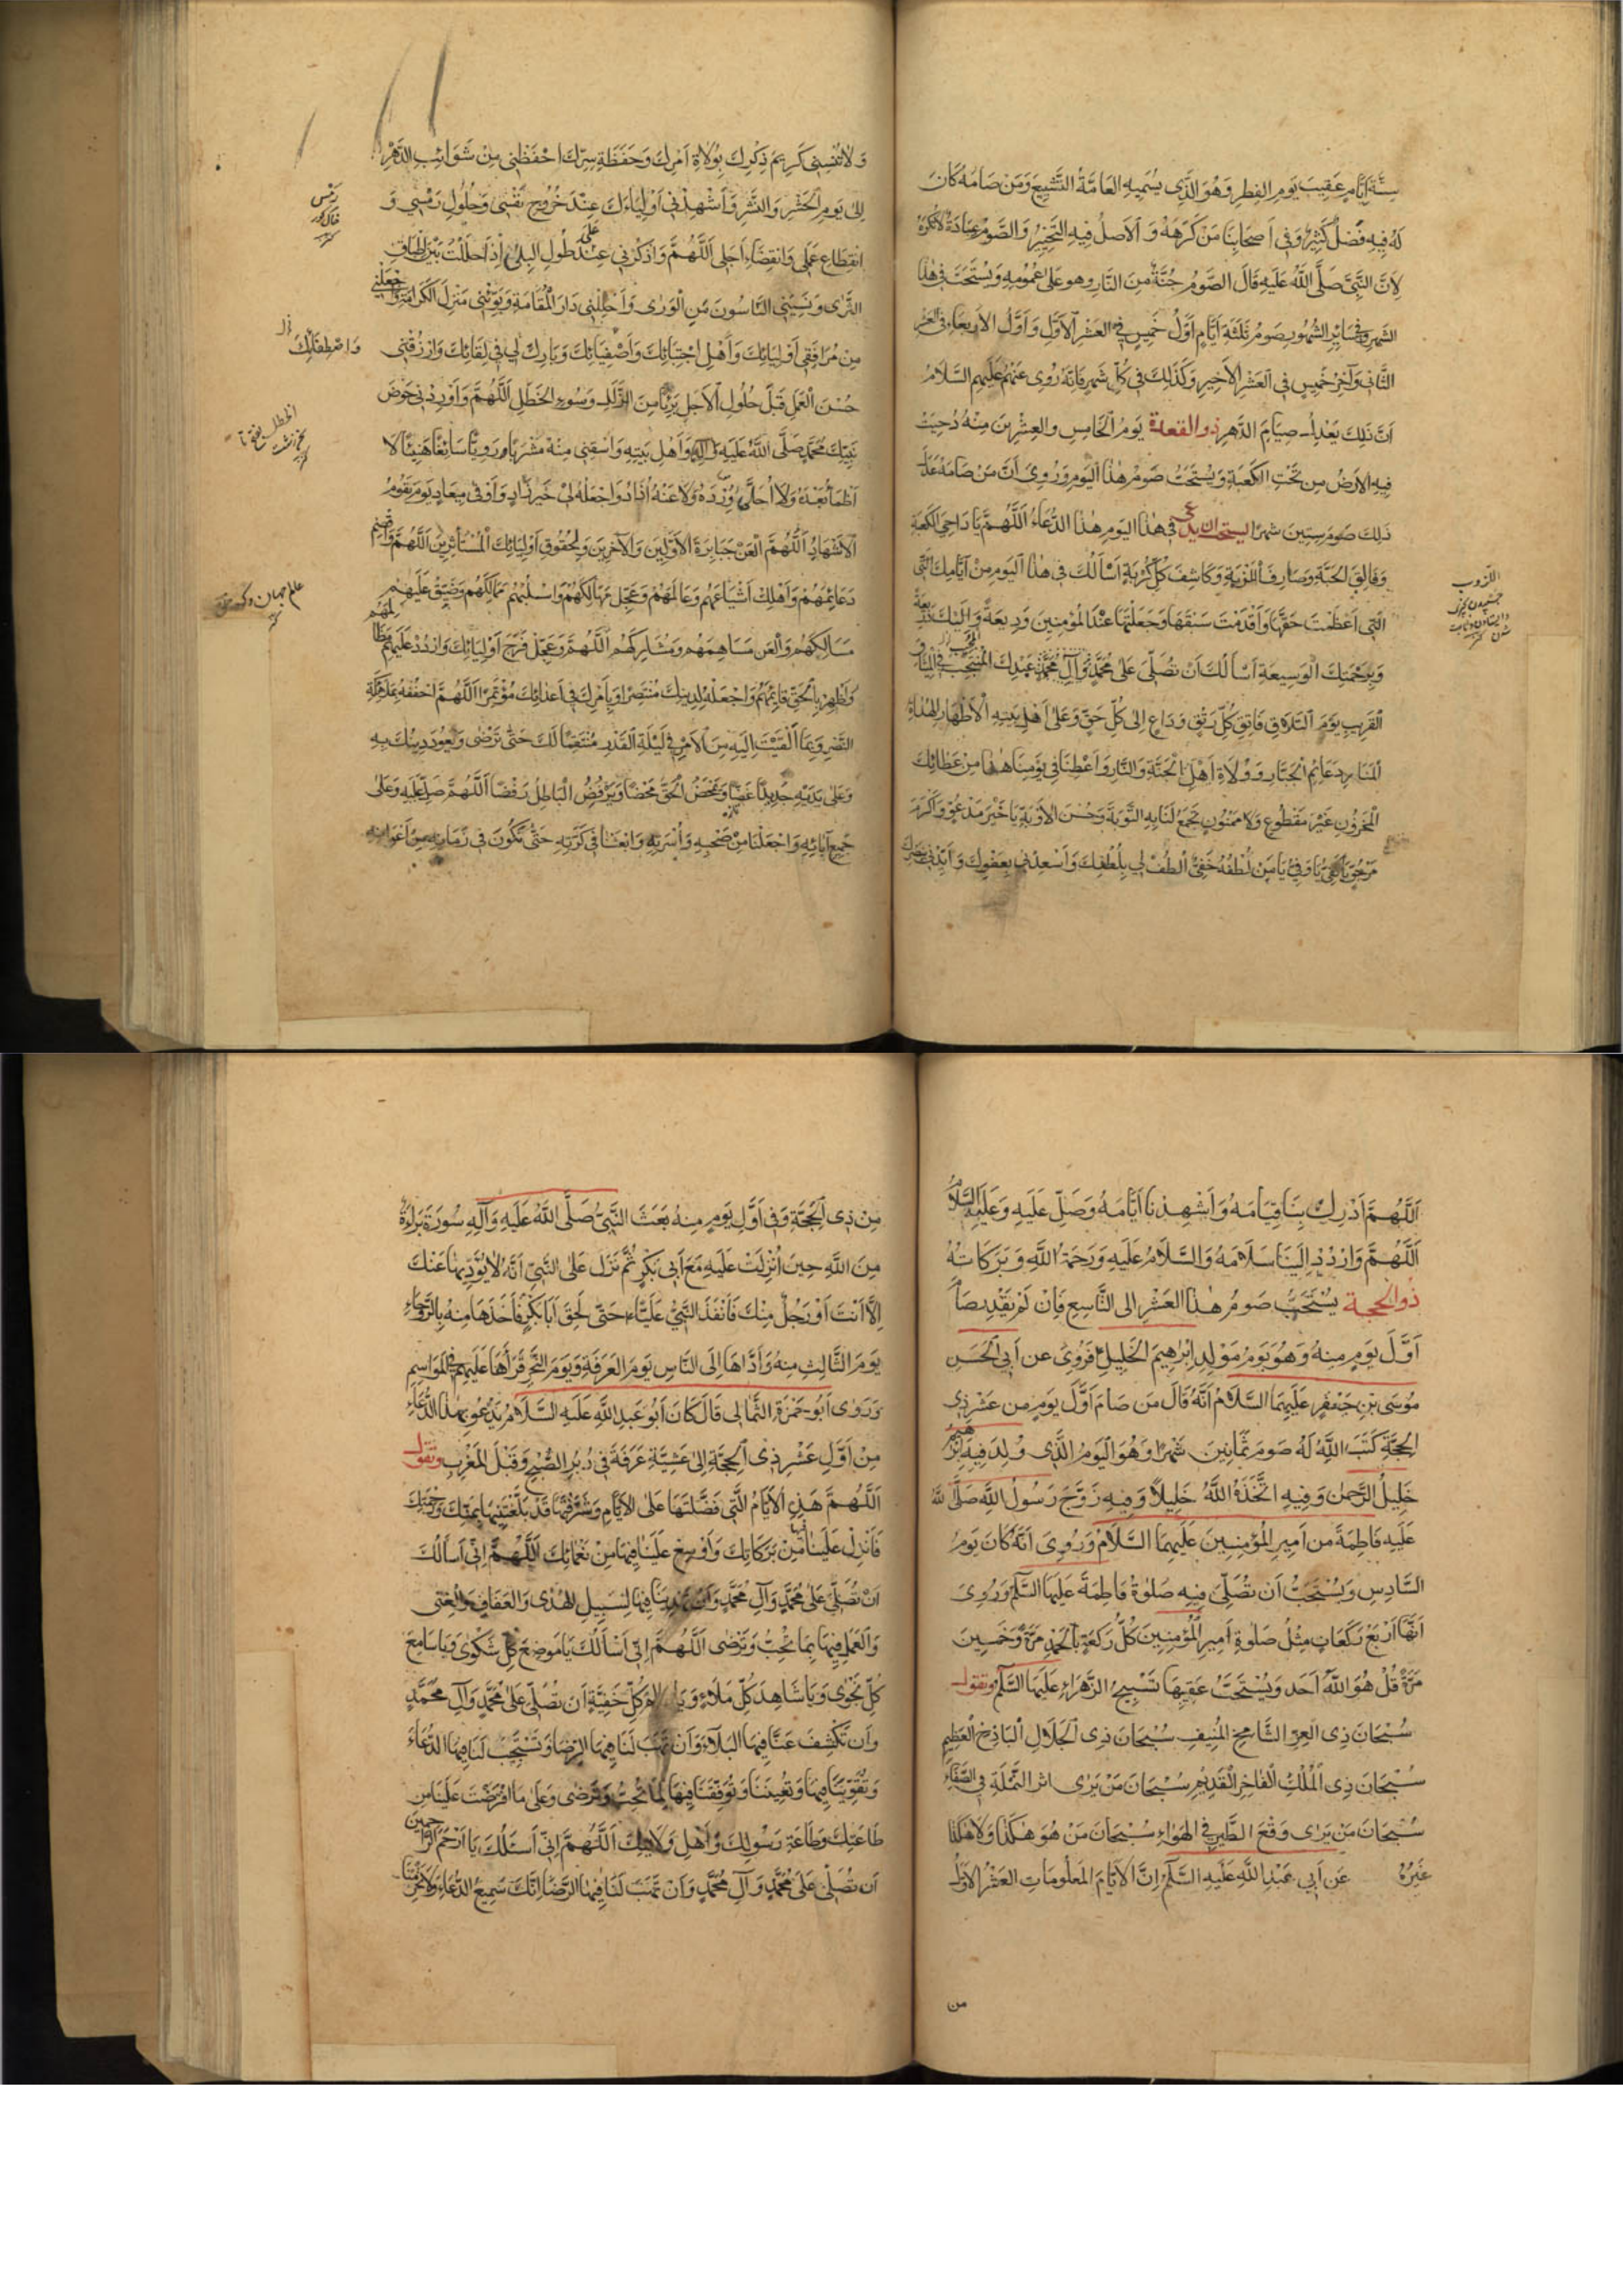 ستة ايام عقيب يوم الفطر وهو الذي يسميه العامة التشييع ومن صامه كان
له فيه فضل كثير وفي اصحابنا من كرهه والاصل فيه التخيير والصوم عبادة لا تكره
لان النبي صلى الله عليه قال الصوم جنة من النار وهو على عمومه ويستحب في هذا
الشهر وفي سائر الشهور صوم ثلثة ايام اول خميس في العشر الاول واول الاربعاء في العشر
الثاني وآخر خميس في العشر الاخير وكذلك في كل شهر فانه روى عنهم عليهم السلام
ان ذلك يعدل صيام الدهر ذو القعدة يوم الخامس والعشرين منه دحيت
فيه الارض من تحت الكعبة ويستحب صوم هذا اليوم وروي ان من صامه عدل
ذلك صوم ستين شهرا يستحب ان يدعى في هذا اليوم هذا الدعاء اللهم يا داحي الكعبة
وفالق الحبة وصارف اللزبة وكاشف كل كربة اسألك في هذا اليوم من ايامك التي
التي اعظمت حقها واقدمت سبقها وجعلتها عند المؤمنين وديعة واليك ذريعة
وبرحمتك الوسيعة اسألك ان تصلي على محمد وآل محمد عبدك المنتجب في الميثاق
القريب يوم التلاق فاتق كل رتق وداع الى كل حق وعلى اهل بيته الاطهار الهداة
المنار دعائم الجبار وولاة اهل الجنة والنار واعطنا في يومنا هذا من عطائك
المخزون غير مقطوع ولا ممنون تجمع لنا به التوبة وحسن الاوبة يا خير مدعو واكرم
مرجو يا كفي يا وفي يا من لطفه خفي الطف لي بلطفك واسعدني بعفوك وايدني بنصرك
اللزوب
ولا تنسني كريم ذكرك بولاة امرك وحفظة سرك احفظني من شوائب الدهر
الى يوم الحشر والنشر واشهدني اولياءك عند خروج نفسي وحلول رمسي و
انقطاع عملي وانقضاء اجلي اللهم واذكرني على طول البلى اذا حللت بين اطباق
الثرى ونسيني الناسون من الورى واحللني دار المقامة وبوئني منزل الكرامة واجعلني
من مرافقي اوليائك واهل اجتبائك واصفيائك وبارك لي في لقائك وارزقني
حسن العمل قبل حلول الاجل بريئا من الزلل وسوء الخطل اللهم واوردني حوض
نبيك محمد صلى الله عليه وآله واهل بيته واسقني منه مشربا رويا سائغا هنيئا لا
اظمأ بعده ولا احلأ ورده ولا عنه اذاد واجعله لي خير زاد واوفى ميعاد يوم يقوم
الاشهاد اللهم العن جبابرة الاولين والآخرين ولحقوق اوليائك المستأثرين اللهم واقصم
دعائمهم واهلك اشياعهم وعاملهم وعجل مهالكهم واسلبهم ممالكهم وضيق عليهم
مسالكهم والعن مساهمهم ومشاركهم اللهم وعجل فرج اوليائك واردد عليهم مظالمهم
واظهر بالحق قائمهم واجعله لدينك منتصرا وبامرك في اعدائك مؤتمرا اللهم احففه بملائكة
النصر وبما القيت اليه من الامر في ليلة القدر منتقما لك حتى ترضى ويعود دينك به
وعلى يديه جديدا غضا ويمحض الحق محضا ويرفض الباطل رفضا اللهم صل عليه وعلى
جميع آبائه واجعلنا من صحبه واسرته وابعثنا في كرته حتى نكون في زمانه من اعوانه
رمس
واصطفائك
علم جهان
اللهم ادرك بنا قيامه واشهدنا ايامه وصل عليه وعليه السلام
اللهم واردد الينا سلامه والسلام عليه ورحمة الله وبركاته
ذو الحجة يستحب صوم هذا العشر الى التاسع فان لم يقدر صام
اول يوم منه وهو يوم مولد ابرهيم الخليل فروي عن ابي الحسن
موسى بن جعفر عليهما السلام انه قال من صام اول يوم من عشر ذي
الحجة كتب الله له صوم ثمانين شهرا وهو اليوم الذي ولد فيه ابرهيم
خليل الرحمن وفيه اتخذه الله خليلا وفيه زوج رسول الله صلى الله
عليه فاطمة من امير المؤمنين عليهما السلام وروي انه كان يوم
السادس ويستحب ان تصلي فيه صلوة فاطمة عليها السلم وروي
انها اربع ركعات مثل صلوة امير المؤمنين كل ركعة بالحمد مرة وخمسين
مرة قل هو الله احد ويستحب عقيبها تسبيح الزهراء عليها السلم وتقول
سبحان ذي العز الشامخ المنيف سبحان ذي الجلال الباذخ العظيم
سبحان ذي الملك الفاخر القديم سبحان من يرى اثر النملة في الصفاء
سبحان من يرى وقع الطير في الهواء سبحان من هو هكذا ولا هكذا
غيره عن ابي عبد الله عليه السلم ان الايام المعلومات العشر الاول
من
من ذي الحجة وفي اول يوم منه بعث النبي صلى الله عليه وآله سورة براءة
من الله حين انزلت عليه مع ابي بكر ثم نزل على النبي انه لا يؤديها عنك
الا انت او رجل منك فانفذ النبي عليا حتى لحق ابا بكر فاخذها منه بالروحاء
يوم الثالث منه واداها الى الناس يوم العرفة ويوم النحر قرأها عليهم في المواسم
وروى ابو حمزة الثمالي قال كان ابو عبد الله عليه السلام يدعو بهذا الدعاء
من اول عشر ذي الحجة الى عشية عرفة في دبر الصبح وقبل المغرب وتقول
اللهم هذه الايام التي فضلتها على الايام وشرفتها قد بلغتنيها بمنك ورحمتك
فانزل علينا من بركاتك واوسع علينا فيها من نعمائك اللهم اني اسألك
ان تصلي على محمد وآل محمد وان تهدينا فيها لسبيل الهدى والعفاف والغنى
والعمل فيها بما تحب وترضى اللهم اني اسألك يا موضع كل شكوى ويا سامع
كل نجوى ويا شاهد كل ملاء ويا عالم كل خفية ان تصلي على محمد وآل محمد
وان تكشف عنا فيها البلاء وان تهب لنا فيها الرضا وتستجيب لنا فيها الدعاء
وتقوينا فيها وتعيننا وتوفقنا فيها لما تحب وترضى وعلى ما افترضت علينا من
طاعتك وطاعة رسولك واهل ولايتك اللهم اني اسئلك يا ارحم الراحمين
ان تصلي على محمد وآل محمد وان تهب لنا فيها الرضا انك سميع الدعاء ولا تحرمنا